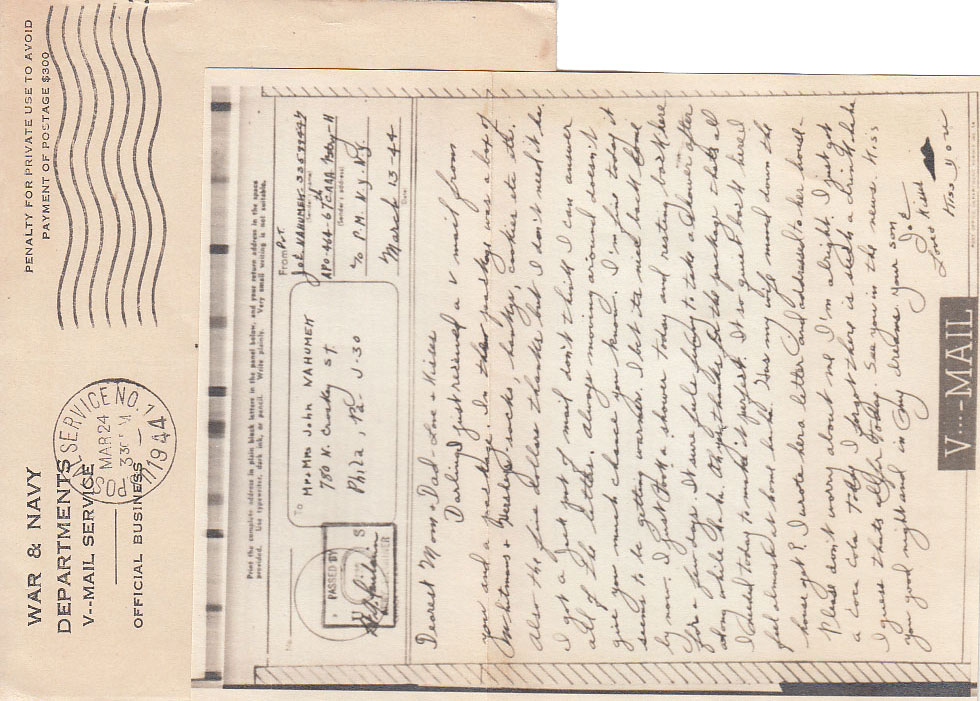 WAR & NAVY
DEPARTMENTS
V--MAIL SERVICE
OFFICIAL BUSINESS
PENALTY FOR PRIVATE USE TO AVOID
PAYMENT OF POSTAGE $300
SERVICE NO. 1
MAR 24
1944
Print the complete address in plain block letters in the panel below, and your return address in the space
provided. Use typewriter, dark ink, or pencil. Write plainly. Very small writing is not suitable.
PASSED BY
U S
To
Mr + Mrs John NAHUMEK
780 N. Croskey ST
Phila, Pa - J-30
From Pvt.
Joe NAHUMEK-33579447
(Sender's name)
APO-464-67th CAAA Btry-H
(Sender's address)
c/o P.M. N.Y. N.Y.
March 13-44
Date
Dearest Mom & Dad-Love + Kisses
Darling I just received a V mail from
you and a package. In the package was a box of
Whitmans + Hersheys, socks, hankys, cookies etc etc.
Also the five dollars thanks but I don't need it he.
I got a just of mail don't think I can answer
all of the letters. Always moving around doesn't
give you much chance you know. I'm fine today it
seems to be getting warmer. I bet its nice back home
by now. I just took a shower today and resting back here
for a few days. It sure feels funny to take a shower after
a long while Ha ha. Oh yes, thanks for the package thats all
I needed today to make it perfect. It so quiet back here I
feel almost at home haha. Has my wife moved down the
house yet? I wrote her a letter and addressed to her house-
Please don't worry about me I'm alright. I just got
a coca cola today I forgot there is such a drink haha
I guess thats all for today. See you in the news. Kiss
you good night and in my dreams Your son
Joe
Love + Kisses
Miss You
V---MAIL